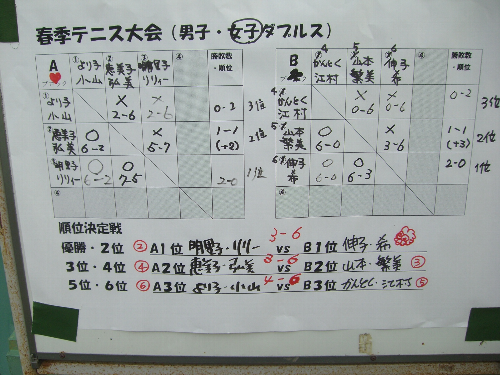 春季テニス大会（男子・女子ダブルス）
A ① より子 小山 ② 恵美子 弘美 ③ リリー ④ 勝敗数・順位
① より子 小山 × 2-6 × 2-6 0-2 3位
② 恵美子 弘美 ○ 6-2 × 5-7 1-1 (+2) 2位
③ リリー ○ 6-2 ○ 7-5 2-0 1位
④
B 4 かんとく 江村 5 山本 繁美 6 伸子 希 ④ 勝敗数・順位
4 かんとく 江村 × 0-6 × 0-6 0-2 3位
5 山本 繁美 ○ 6-0 × 3-6 1-1 (+3) 2位
6 伸子 希 ○ 6-0 ○ 6-3 2-0 1位
④
順位決定戦
3-6
優勝・2位 ② A1位 リリー vs B1位 伸子・希
3-6
3位・4位 ④ A2位 恵美子・弘美 vs B2位 山本・繁美 ③
4-6
5位・6位 ⑥ A3位 より子・小山 vs B3位 かんとく・江村 ⑤